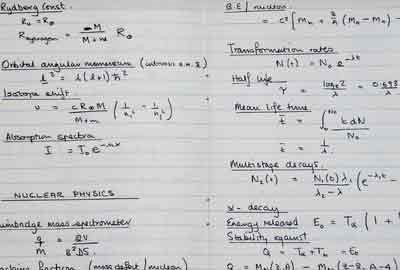 Rydberg Const.
R∞ = R∞
R_Hydrogen = M / (M+m) R∞
Orbital angular momentum
l² = l(l+1)ħ²
Isotope shift
ν = cR∞M / (M+m) (1/n² - 1/n²)
Absorption spectra
I = I₀e
NUCLEAR PHYSICS
Bainbridge mass spectrometer
q/M = 2V / B²D
fraction (mass defect / nucleon)
B.E / nucleon
= c² [M + (M - M) -
Transformation rates
N(t) = N₀ e^-λt
Half life
τ = log₂ / λ = 0.693 / λ
Mean life time
t̄ = ∫ t dN / N₀
t̄ = 1/λ
Multistage decays
N₂(t) = N₁(0) λ₁ / (λ₂ - λ₁) (e^-λ₁t -
α-decay
Energy released E₀ = Tα (1 +
Stability against
Q = Tα + T = E₀
Q = M(Z,A) - M(Z-2, A-4)